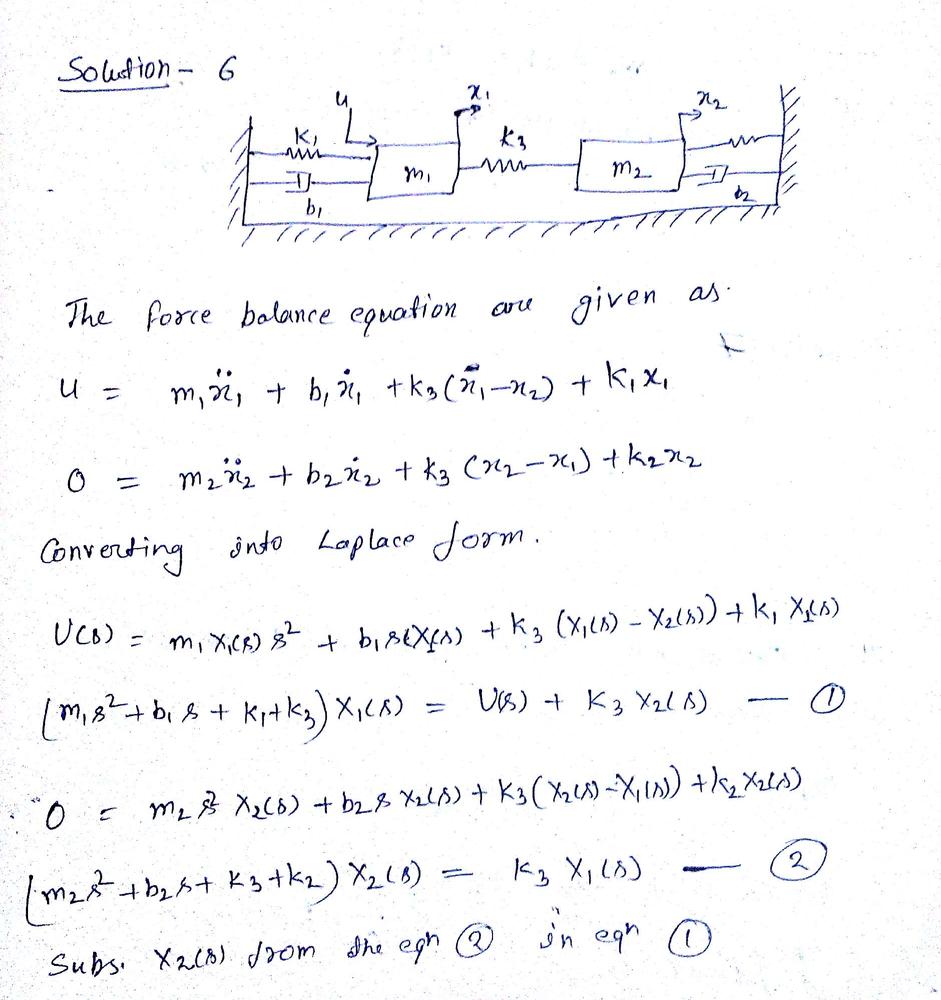 Solution - 6
u x₁ x₂
k₁ k₃
m₁ m₂
b₁ b₂
The force balance equation are given as.
u = m₁ẍ₁ + b₁ẋ₁ + k₃(x₁-x₂) + k₁x₁
0 = m₂ẍ₂ + b₂ẋ₂ + k₃ (x₂-x₁) + k₂x₂
Converting into Laplace form.
U(s) = m₁X₁(s) s² + b₁s X₁(s) + k₃ (X₁(s) - X₂(s)) + k₁ X₁(s)
(m₁s² + b₁s + k₁+k₃) X₁(s) = U(s) + k₃ X₂(s) — ①
0 = m₂s² X₂(s) + b₂s X₂(s) + k₃(X₂(s) - X₁(s)) + k₂X₂(s)
(m₂s² + b₂s + k₃+k₂) X₂(s) = k₃ X₁(s) — ②
Subs. X₂(s) from the eqn ② in eqn ①